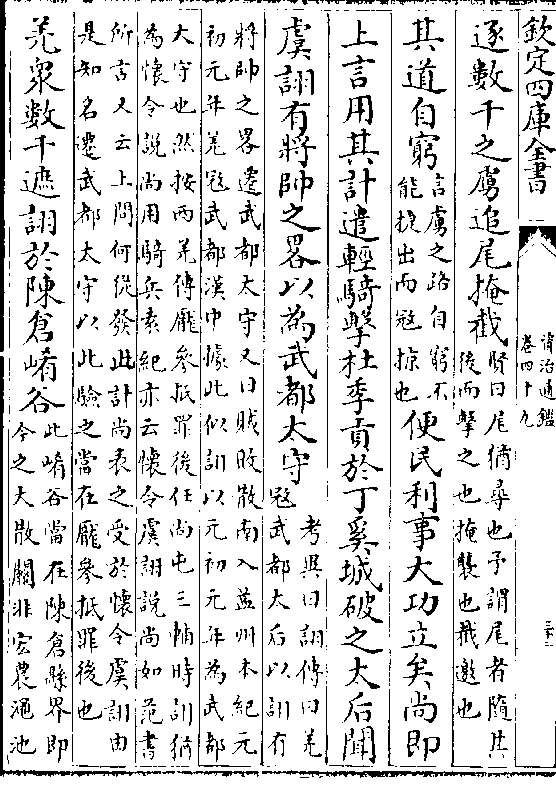 欽定四庫全書
資治通鑑
卷四十九
逐數千之虜追尾掩截
賢曰尾猶尋也予謂尾者隨其
後而擊之也掩襲也截邀也
其道自窮
言虜之路自窮不
能復出而寇掠也
便民利事大功立矣尚即
上言用其計遣輕騎擊杜季貢於丁奚城破之太后聞
虞詡有將帥之畧以為武都太守
考異曰詡傳曰羌
寇武都太后以詡有
將帥之畧遷武都太守又曰賊敗散南入益州本紀元
初元年羌寇武都漢中據此似詡以元初元年為武都
太守也然按西羌傳龐參抵罪後任尚屯三輔時詡猶
為懷令說尚用騎兵袁紀亦云懷令虞詡說尚如范書
所言又云上問何從發此計尚表之受於懷令虞詡由
是知名遷武都太守以此驗之當在龐參抵罪後也
羌衆數千遮詡於陳倉崤谷
此崤谷當在陳倉縣界即
今之大散關非宏農澠池